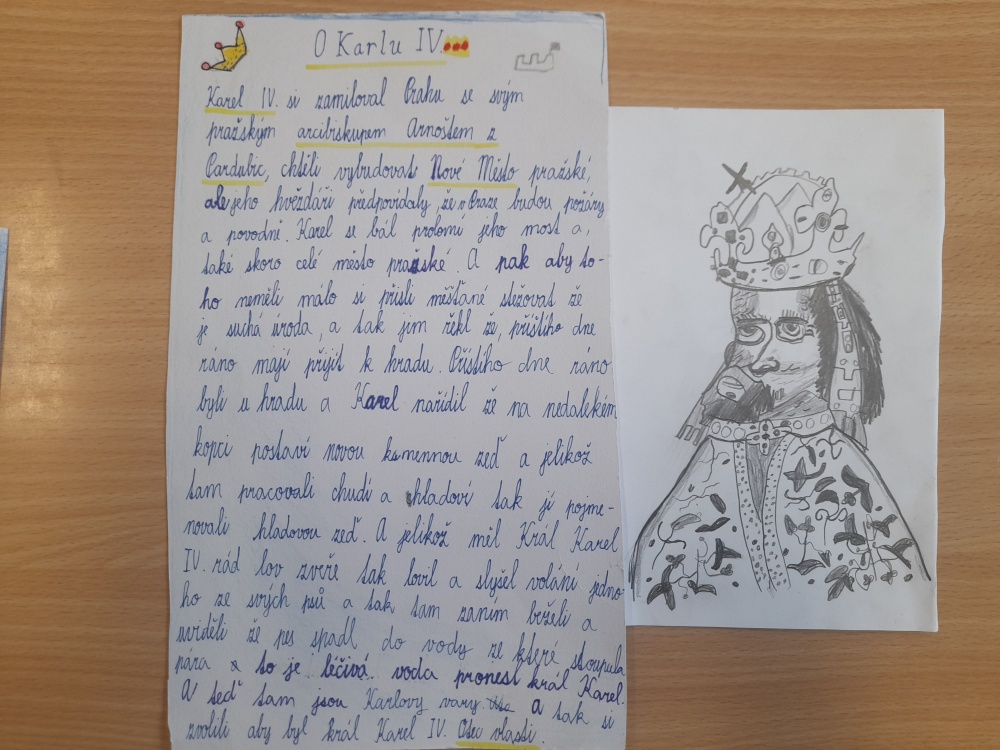 O Karlu IV.
Karel IV. si zamiloval Prahu se svým
pražským arcibiskupem Arnoštem z
Pardubic, chtěli vybudovat Nové Město pražské,
ale jeho hvězdáři předpovídaly, že v Praze budou požáry
a povodně. Karel se bál prolomí jeho most a,
také skoro celé město pražské. A pak aby to-
ho neměli málo si přišli měšťané stežovat že
je suchá úroda, a tak jim řekl že, příštího dne
ráno mají přijít k hradu. Příštího dne ráno
byli u hradu a Karel nařídil že na nedalekém
kopci postaví novou kamennou zeď a jelikož
tam pracovali chudí a hladoví tak ji pojme-
novali hladovou zeď. A jelikož měl Král Karel
IV. rád lov zvěře tak lovil a slyšel volání jedno-
ho ze svých psů a tak tam zaním běželi a
uviděli že pes spadl do vody ze které stoupala
pára a to je léčivá voda pronesl král Karel.
A teď tam jsou Karlovy vary. A tak si
zvolili aby byl král Karel IV. Otec vlasti.